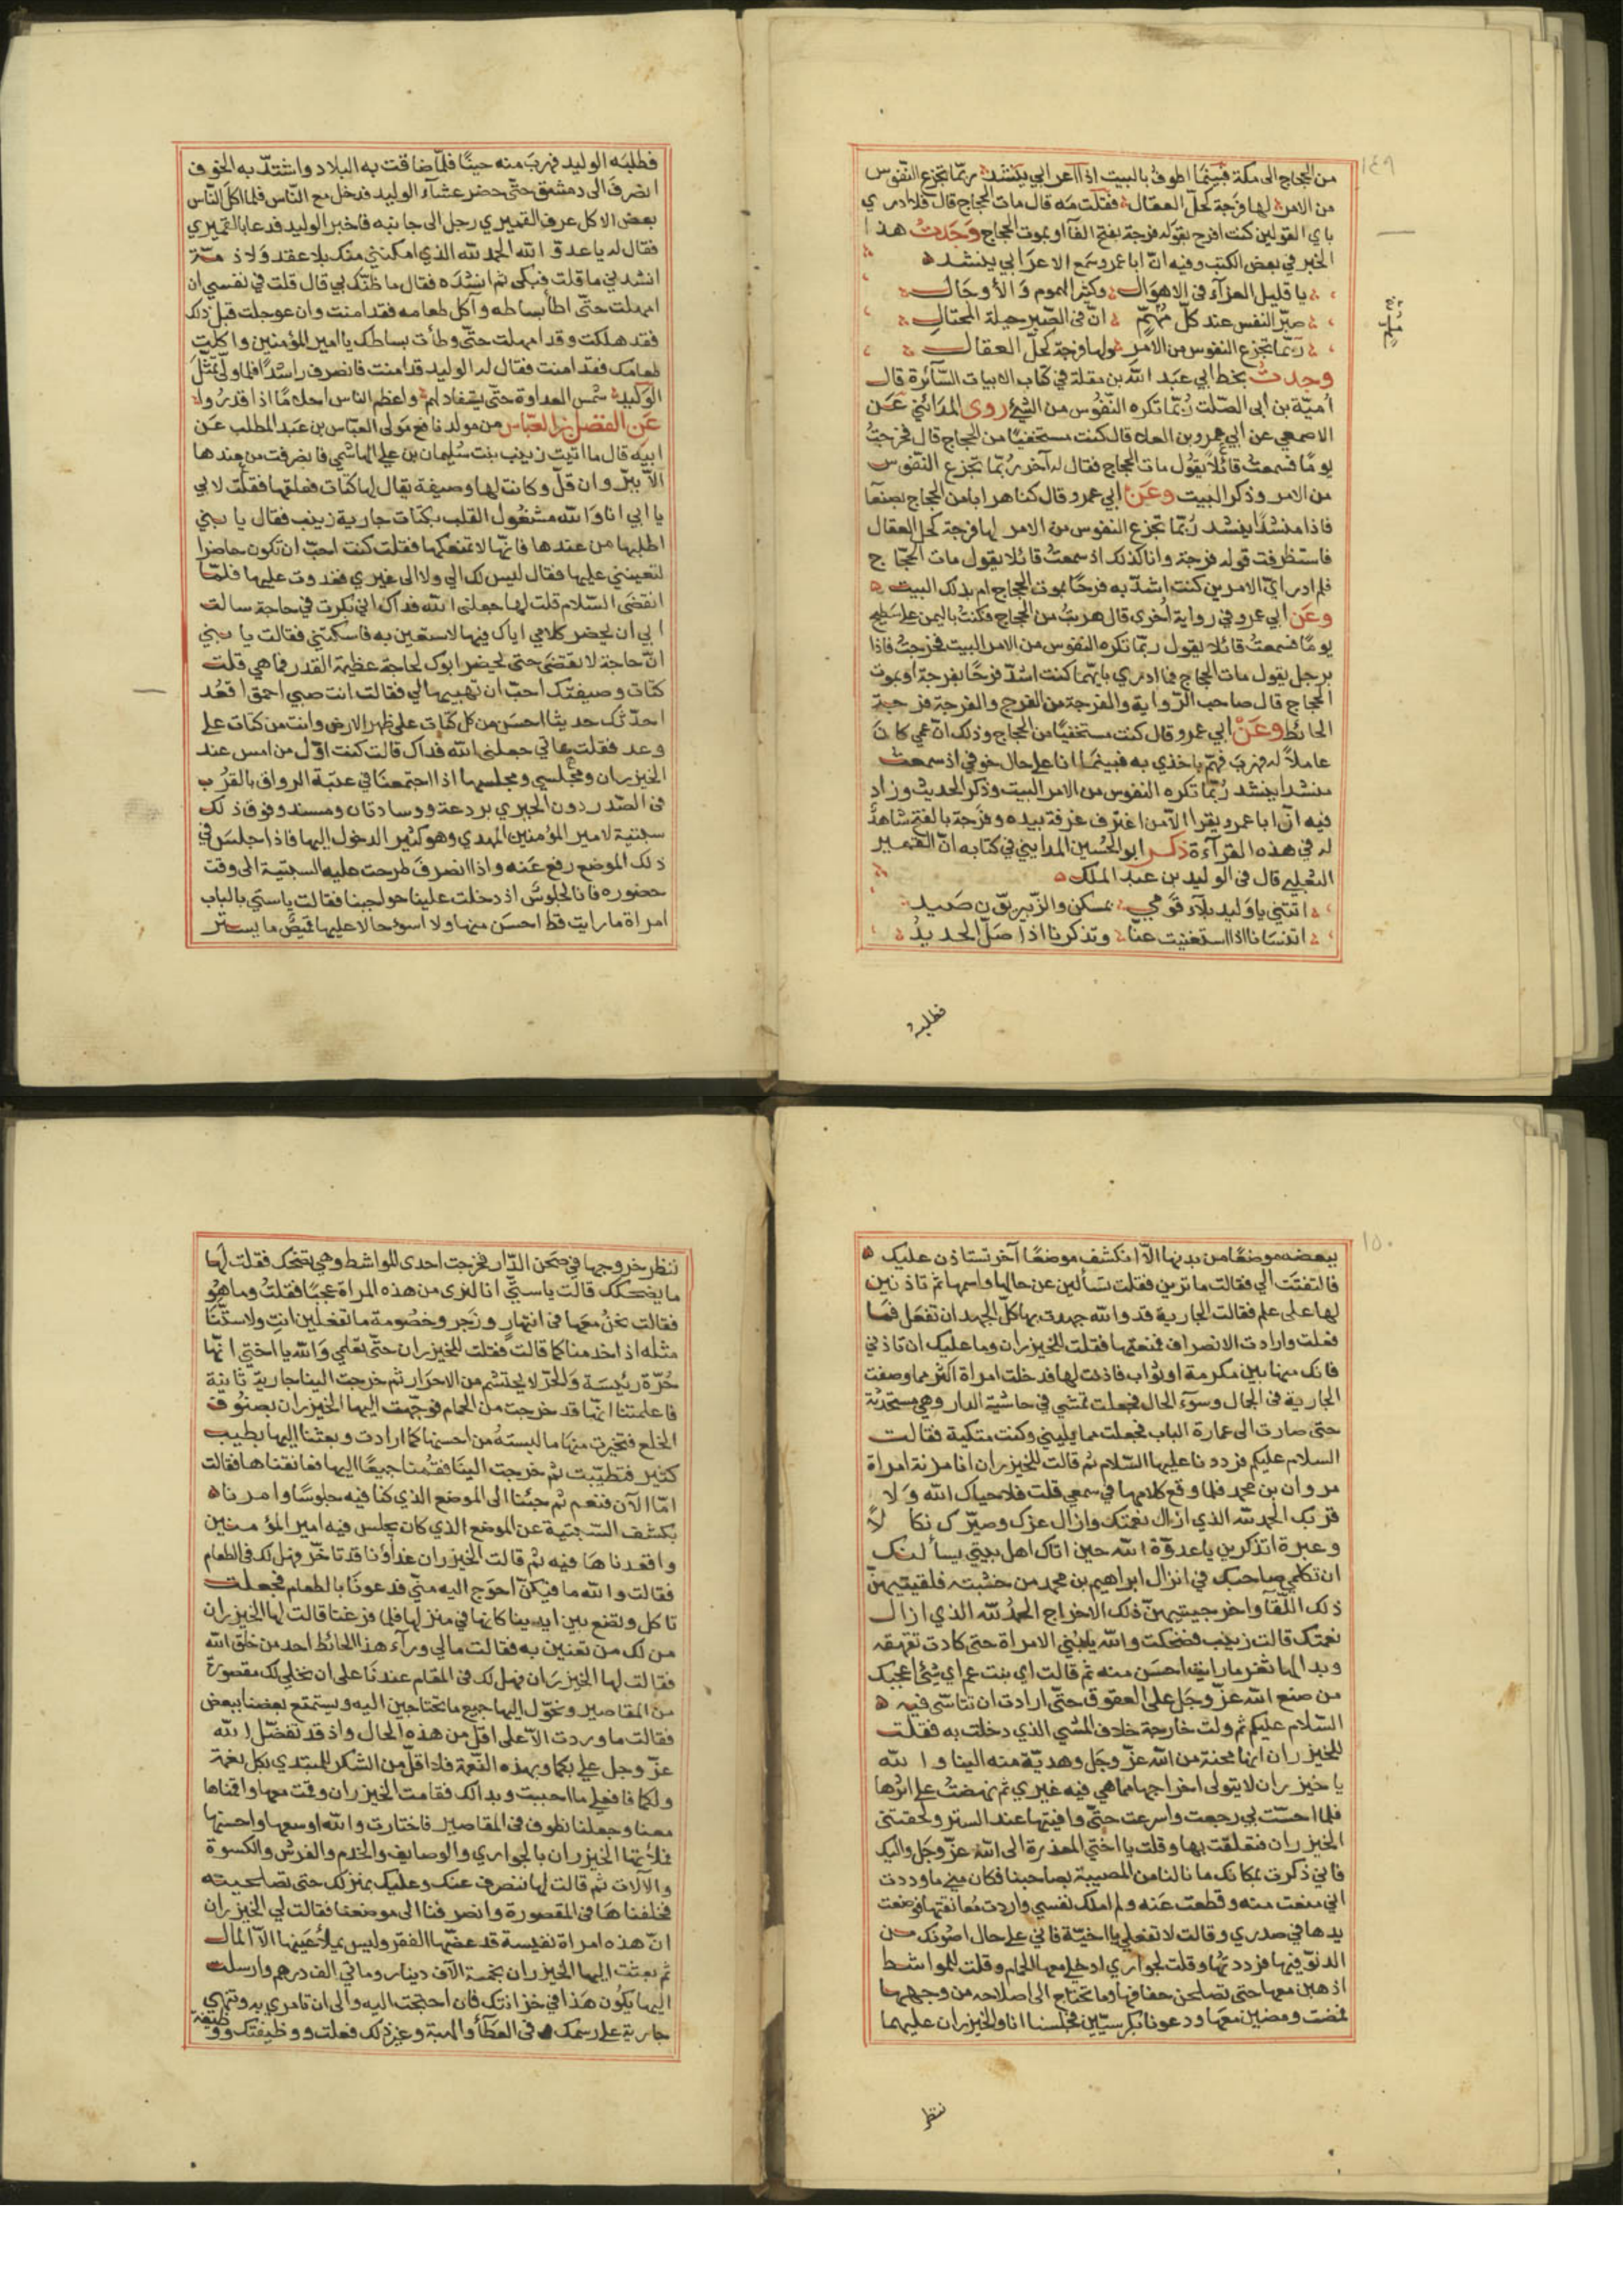 ١٤٩
من الحجاج الى مكة فبينما اطوف بالبيت اذا اعرابي ينشد ربما تجزع النفوس
من الامر لها فرجة كحل العقال فقلت مه قال مات الحجاج قال فلا ادري
باي القولين كنت افرح بقوله فرجة بفتح الفا او بموت الحجاج وجدت هذا
الخبر في بعض الكتب وفيه ان ابا عمرو سمع الاعرابي ينشد
يا قليل العزآء في الاهوال وكثير الهموم والاوجال
صبر النفس عند كل مهم ان في الصبر حيلة المحتال
ربما تجزع النفوس من الامر ولها فرجة كحل العقال
وجدت بخط ابي عبد الله بن مقلة في كتاب الابيات السآئرة قال
امية بن ابي الصلت ربما تكره النفوس من الشيء روى المدائني عن
الاصمعي عن ابي عمرو بن العلا قال كنت مستخفيا من الحجاج قال فخرجت
يوما فسمعت قائلا يقول مات الحجاج فقال له آخر ربما تجزع النفوس
من الامر وذكر البيت وعن ابي عمرو قال كنا هرابا من الحجاج بصنعا
فاذا منشدا ينشد ربما تجزع النفوس من الامر لها فرجة كحل العقال
فاستظرفت قوله فرجة وانا كذلك اذ سمعت قائلا يقول مات الحجاج
فلم ادر اي الامرين كنت اشد به فرحا بموت الحجاج ام بذلك البيت
وعن ابي عمرو في رواية اخرى قال هربت من الحجاج فكنت باليمن على سطح
يوما فسمعت قائلا يقول ربما تكره النفوس من الامر البيت فخرجت فاذا
برجل يقول مات الحجاج فما ادري بايهما كنت اشد فرحا بفرجة او بموت
الحجاج قال صاحب الرواية والفرجة من الفرج والفرجة فرجة
الحائط وعن ابي عمرو قال كنت مستخفيا من الحجاج وذلك ان عمي كان
عاملا له فهرب فهم باخذي به فبينما انا على حال خوفي اذ سمعت
منشدا ينشد ربما تكره النفوس من الامر البيت وذكر الحديث وزاد
فيه ان ابا عمرو يقرا الا من اغترف غرفة بيده وفرجة بالفتح شاهدا
له في هذه القرآءة ذكر ابو الحسين المدايني في كتابه ان القمير
التغلبي قال في الوليد بن عبد الملك
اتنني يا وليد بلآء قومي بمسكن والزبيريون صيد
اتنسانا اذا استغنيت عنا وتذكرنا اذا صل الحديد
فطلبه
فطلبه الوليد فهرب منه حينا فلما ضاقت به البلاد واشتد به الخوف
انصرف الى دمشق حتى حضر عشآء الوليد فدخل مع الناس فلما اكل الناس
بعض الاكل عرف القميري رجل الى جانبه فاخبر الوليد فدعا بالقميري
فقال له يا عدو الله الحمد لله الذي امكنني منك بلا عقد ولا ذمة
انشدني ما قلت فبكى ثم انشده فقال ما ظنك بي قال قلت في نفسي ان
امهلت حتى اطا بساطه وآكل طعامه فقد امنت وان عوجلت قبل ذلك
فقد هلكت وقد امهلت حتى وطات بساطك يا امير المؤمنين واكلت
طعامك فقد امنت فقال له الوليد قد امنت فانصرف راشدا فلما ولى تمثل
الوليد شمس العداوة حتى يستقاد لهم واعظم الناس احلاما اذا قدروا
عن الفضل بن العباس من مولد نافع مولى العباس بن عبد المطلب عن
ابيه قال ما اتيت زينب بنت سليمان بن علي الهاشمي فانصرفت من عندها
الا ببر وان قل وكانت لها وصيفة يقال لها كتات فعلقتها فقلت لابي
يا ابي انا والله مشغول القلب بكتات جارية زينب فقال يا بني
اطلبها من عندها فانها لا تمنعكها فقلت كنت احب ان تكون حاضرا
لتعينني عليها فقال ليس لك الي ولا الى غيري فغدوت عليها فلما
انقضى السلام قلت لها جعلني الله فداك اني بكرت في حاجة سالت
ابي ان يحضر كلامي اياك فيها لاستعين به فاسكتني فقالت يا بني
ان حاجة لا تقضى حتى يحضر ابوك لحاجة عظيمة القدر فما هي قلت
كتات وصيفتك احب ان تهبيها لي فقالت انت صبي احمق اقعد
احدثك حديثا احسن من كل كتات على ظهر الارض وانت من كتات على
وعد فقلت هاتي جعلني الله فداك قالت كنت اول من امس عند
الخيزران ومجلسي ومجلسها اذا اجتمعنا في عتبة الرواق بالقرب
في الصدر دون الحيري بردعة ووسادتان ومسند وفوق ذلك
سبنية لامير المؤمنين المهدي وهو كثير الدخول اليها فاذا جلس في
ذلك الموضع رفع عنه واذا انصرف طرحت عليه السبنية الى وقت
حضوره فانا لجلوس اذ دخلت علينا حواجبنا فقالت يا ستي بالباب
امراة ما رايت قط احسن منها ولا اسوء حالا عليها قميص ما يستر
١٥٠
ببعضه موضعا من بدنها الا انكشف موضعا آخر تستاذن عليك
فالتفتت الي فقالت ما ترين فقلت تسألين عن حالها واسمها ثم تاذنين
لها على علم فقالت الجارية قد والله جهدت بها كل الجهد ان تفعل فما
فعلت وارادت الانصراف فمنعتها فقلت للخيزران وما عليك ان تاذني
فانك منها بين مكرمة او ثواب فاذنت لها فدخلت امراة اكثر مما وصفت
الجارية في الجمال وسوء الحال فجعلت تمشي في حاشية الدار وهي مستحذية
حتى صارت الى عمارة الباب فجعلت مما يليني وكنت متكية فقالت
السلام عليكم فرددنا عليها السلام ثم قالت للخيزران انا مزنة امراة
مروان بن محمد فلما وقع كلامها في سمعي قلت فلا حياك الله ولا
قربك الحمد لله الذي ازال نعمتك وازال عزك وصيرك نكالا
وعبرة اتذكرين يا عدوة الله حين اتاك اهل بيتي يسألنك
ان تكلمي صاحبك في انزال ابراهيم بن محمد من خشبته فلقيتيهن
ذلك اللقآ واخرجتيهن ذلك الاخراج الحمد لله الذي ازال
نعمتك قالت زينب فضحكت والله يا بني الامراة حتى كادت تقهقه
وبدا لها ثغر ما رايت احسن منه ثم قالت اي بنت عم اي شيء اعجبك
من صنع الله عز وجل على العقوق حتى ارادت ان تتاسي فيه
السلام عليكم ثم ولت خارجة خلاف المشي الذي دخلت به فقلت
للخيزران انها محنة من الله عز وجل وهدية منه الينا والله
يا خيزران لا يتولى اخراجها مما هي فيه غيري ثم نهضت على اثرها
فلما احست بي رجعت واسرعت حتى وافيتها عند الستر ولحقتني
الخيزران فتعلقت بها وقلت يا اختي المعذرة الى الله عز وجل واليك
فاني ذكرت بمكانك ما نالنا من المصيبة بصاحبنا فكان مني ما وددت
اني منعت منه وقطعت عنه ولم املك نفسي واردت معانقتها فوضعت
يدها في صدري وقالت لا تفعلي يا اخية فاني على حال اصونك من
الدنو فيها فرددتها وقلت لجواري ادخلي معها الحمام وقلت للمواشط
اذهبن معها حتى تصلحن حفافها وما تحتاج الى اصلاحه من وجهها
فمضت ومضين معها ودعونا بكرسيين فجلسنا انا والخيزران عليهما
ننتظر
ننظر خروجها في صحن الدار فخرجت احدى المواشط وهي تضحك فقلت لها
ما يضحكك قالت يا ستي انا لنرى من هذه المراة عجبا فقلت وما هو
فقالت نحن معها في انتهار وزجر وخصومة ما تفعلين انت ولا ستنا
مثله اذا خدمناكما قالت فقلت للخيزران حتى تعلمي والله يا اختي انها
حرة رئيسة والحر لا يحتشم من الاحرار ثم خرجت الينا جارية ثانية
فاعلمتنا انها قد خرجت من الحمام فوجهت اليها الخيزران بصنوف
الخلع فتخيرت منها ما لبسته من احسنها كما ارادت وبعثنا اليها بطيب
كثير فتطيبت ثم خرجت الينا فقمنا جميعا اليها فعانقناها فقالت
اما الآن فنعم ثم جئنا الى الموضع الذي كنا فيه جلوسا وامرنا
بكشف السبنية عن الموضع الذي كان يجلس فيه امير المؤمنين
واقعدناها فيه ثم قالت الخيزران غداؤنا قد تاخر فهل لك في الطعام
فقالت والله ما فيكن احوج اليه مني فدعونا بالطعام فجعلت
تاكل وتضع بين ايدينا كانها في منزلها فلما فرغنا قالت لها الخيزران
من لك من تعنين به فقالت ما لي ورآء هذا الحائط احد من خلق الله
فقالت لها الخيزران فهل لك في المقام عندنا على ان نخلي لك مقصورة
من المقاصير ونحول اليها جميع ما تحتاجين اليه ويستمتع بعضنا ببعض
فقالت ما وردت الا على اقل من هذه الحال واذ قد تفضل الله
عز وجل علي بكما وبهذه النعمة فلا اقل من الشكر للمبتدي بكل نعمة
ولكما فافعلي ما احببت وبدا لك فقامت الخيزران وقمت معها واقمناها
معنا وجعلنا نطوف في المقاصير فاختارت والله اوسعها واحسنها
فملأتها الخيزران بالجواري والوصايف والخدم والفرش والكسوة
والآلات ثم قالت لها ننصرف عنك وعليك بمنزلك حتى تصلحيه
فخلفناها في المقصورة وانصرفنا الى موضعنا فقالت لي الخيزران
ان هذه امراة نفيسة قد عضها الفقر وليس يملأ عينها الا المال
ثم بعثت اليها الخيزران بخمسة الآف دينار ومائتي الف درهم وارسلت
اليها يكون هذا في خزانتك فان احتجت اليه والى ان تامري به وتهبي
جارية على رسمك في العطآ والهبة وغير ذلك فعلت ووظيفتك ووظيفة